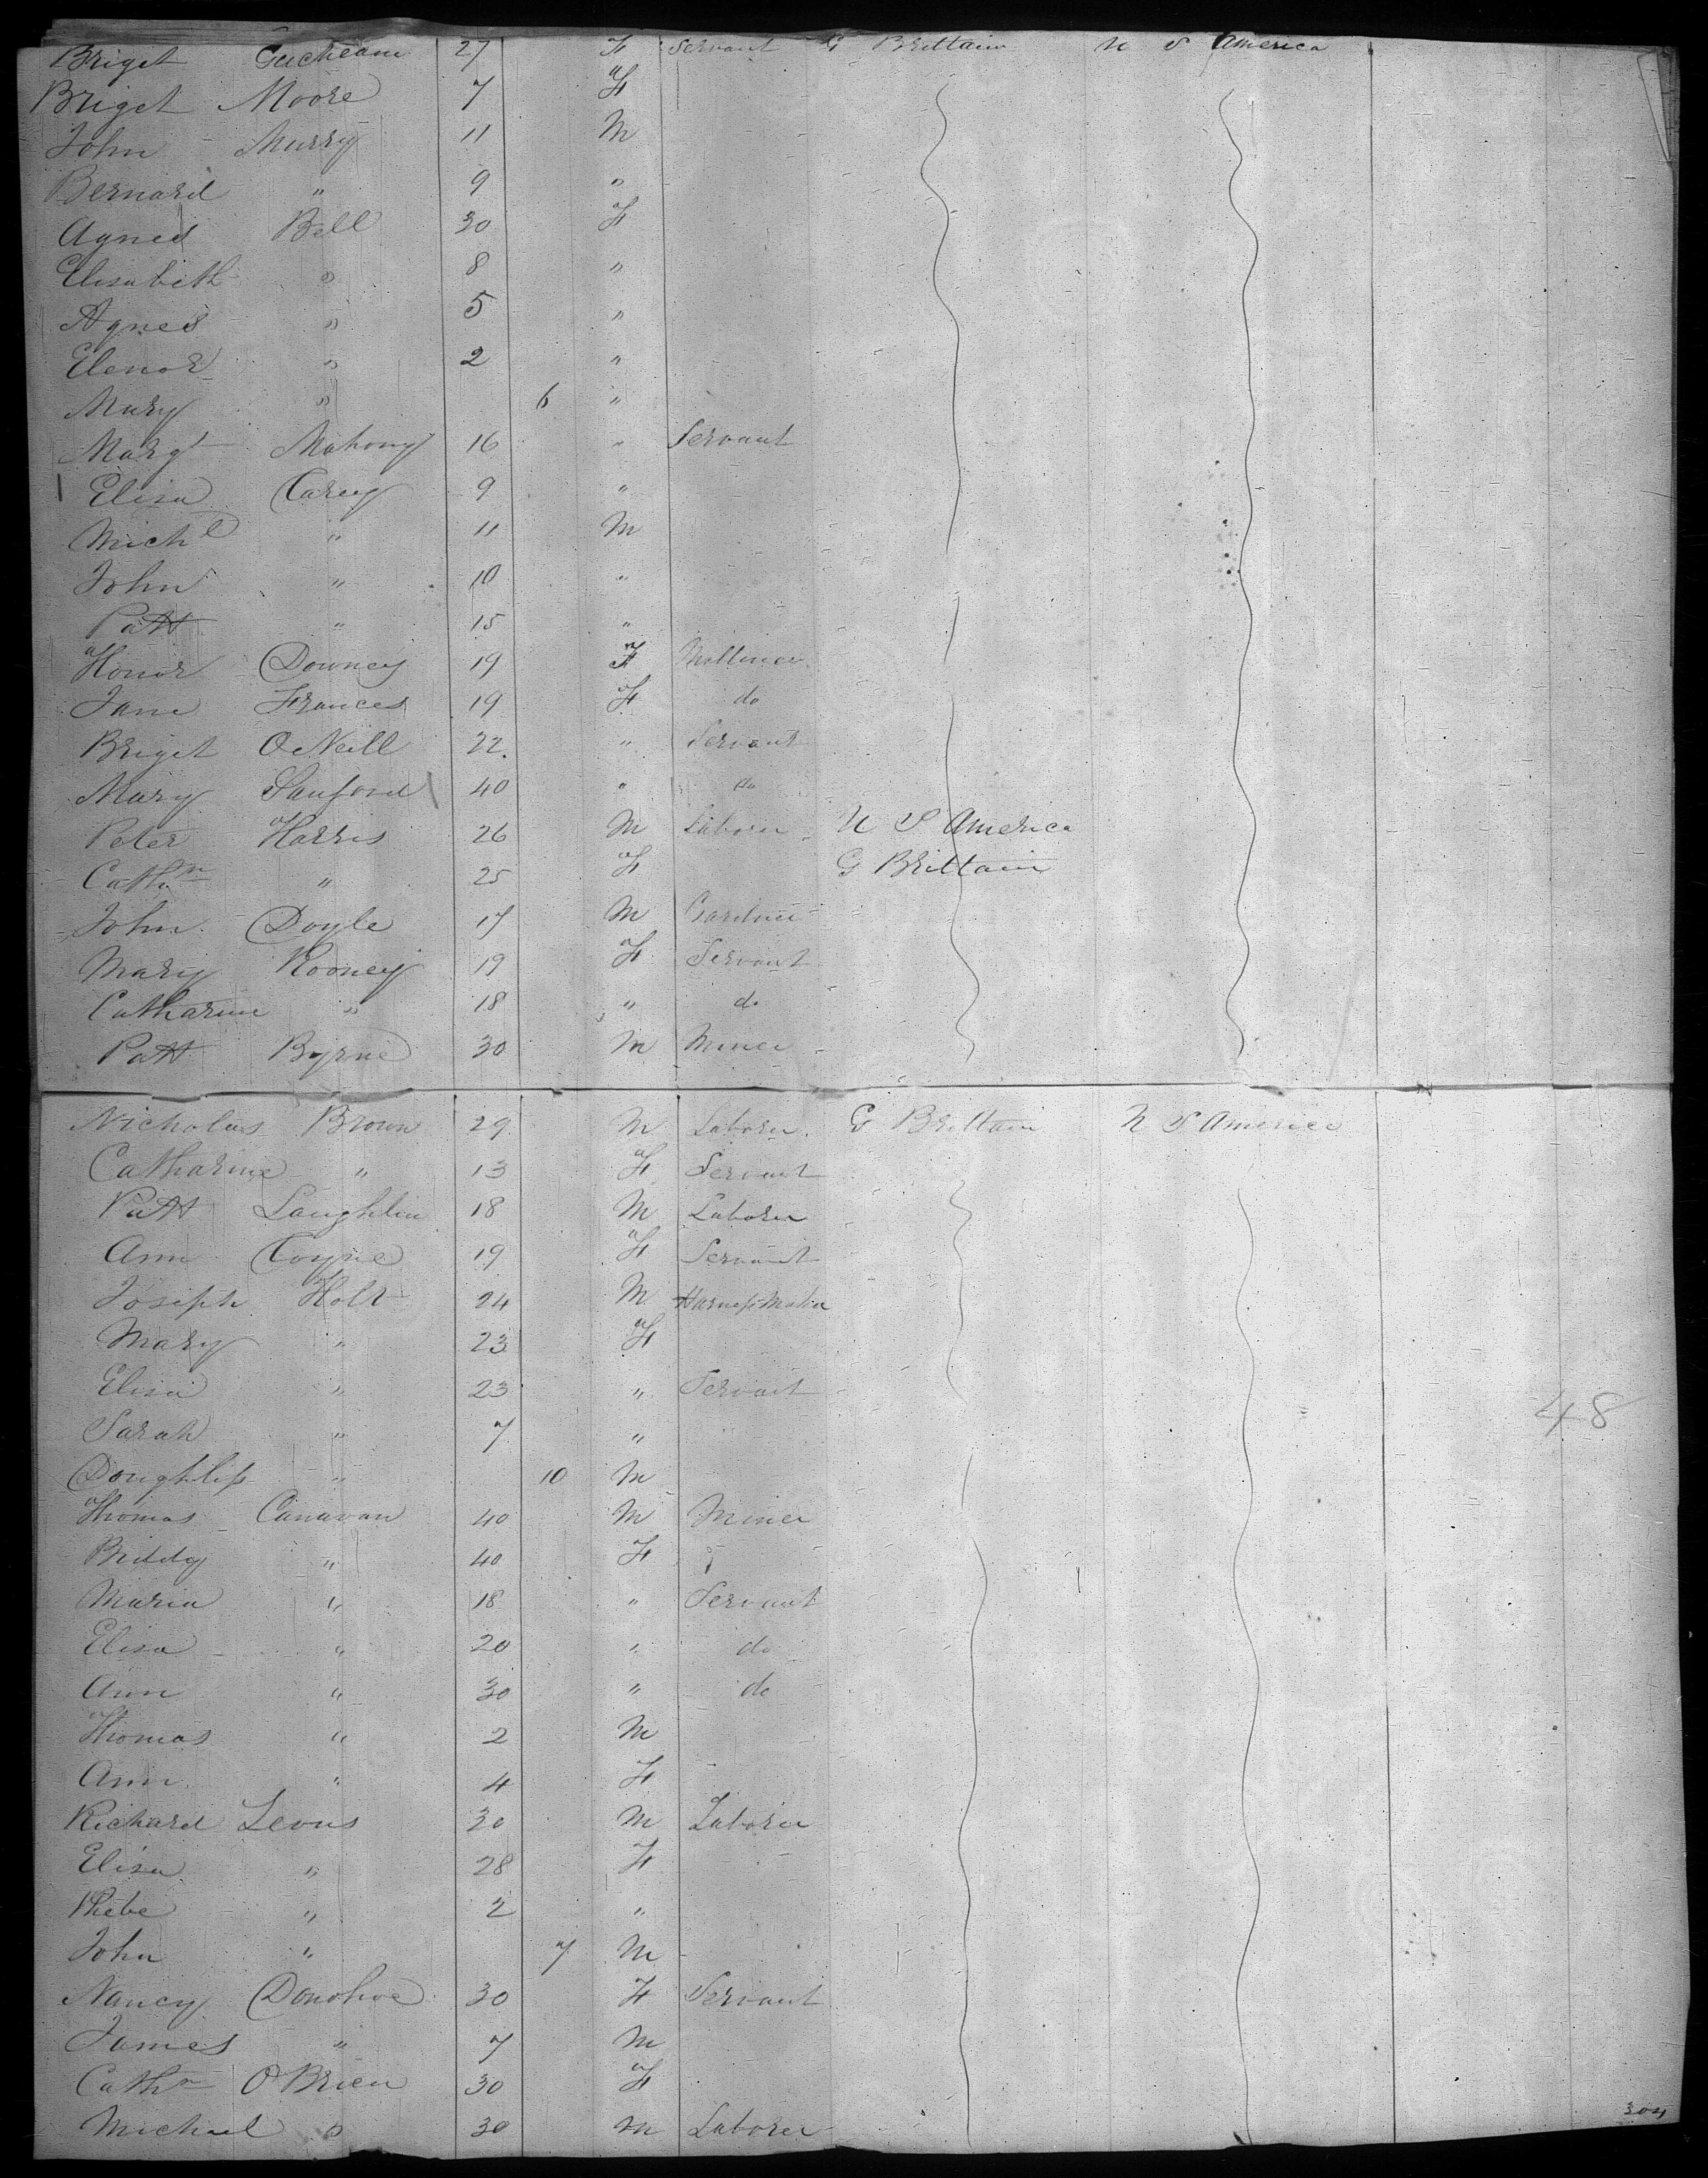 Briget 27 F Servant G Brittain U S America
Briget Moore 7 F
John Murry 11 M
Bernard " 9 "
Agnes Bell 30 F
Elisabeth " 8 "
Agnes " 5 "
Elenor " 2 "
Mary " 6 "
Margt Mahony 16 " Servant
Elisa Carey 9 "
Michl " 11 M
John " 10 "
Patt " 15 "
Honor Downey 19 F Milliner
Jane Frances 19 F do
Briget O Neill 22 " Servant
Mary Sanford 40 " do
Peter Harris 26 M Laborer U S America
Cathn " 25 F G Brittain
John Doyle 17 M Gardner
Mary Rooney 19 F Servant
Catharine " 18 " do
Patt Byrne 30 M Miner
Nicholas Brown 29 M Laborer G Brittain U S America
Catharine " 13 F Servant
Patt Laughlin 18 M Laborer
Ann Coyne 19 F Servant
Joseph Holt 24 M Harness Maker
Mary " 23 F
Elisa " 23 " Servant
Sarah " 7 "
Doughliss " 10 M
48
Thomas Canavan 40 M Miner
Biddy " 40 F
Maria " 18 " Servant
Elisa " 20 " do
Ann " 30 " do
Thomas " 2 M
Ann " 4 F
Richard Levus 30 M Laborer
Elisa " 28 F
Phebe " 2 "
John " 7 M
Nancy Donohoe 30 F Servant
James " 7 M
Cathn O Brien 30 F
Michael " 30 M Laborer
304